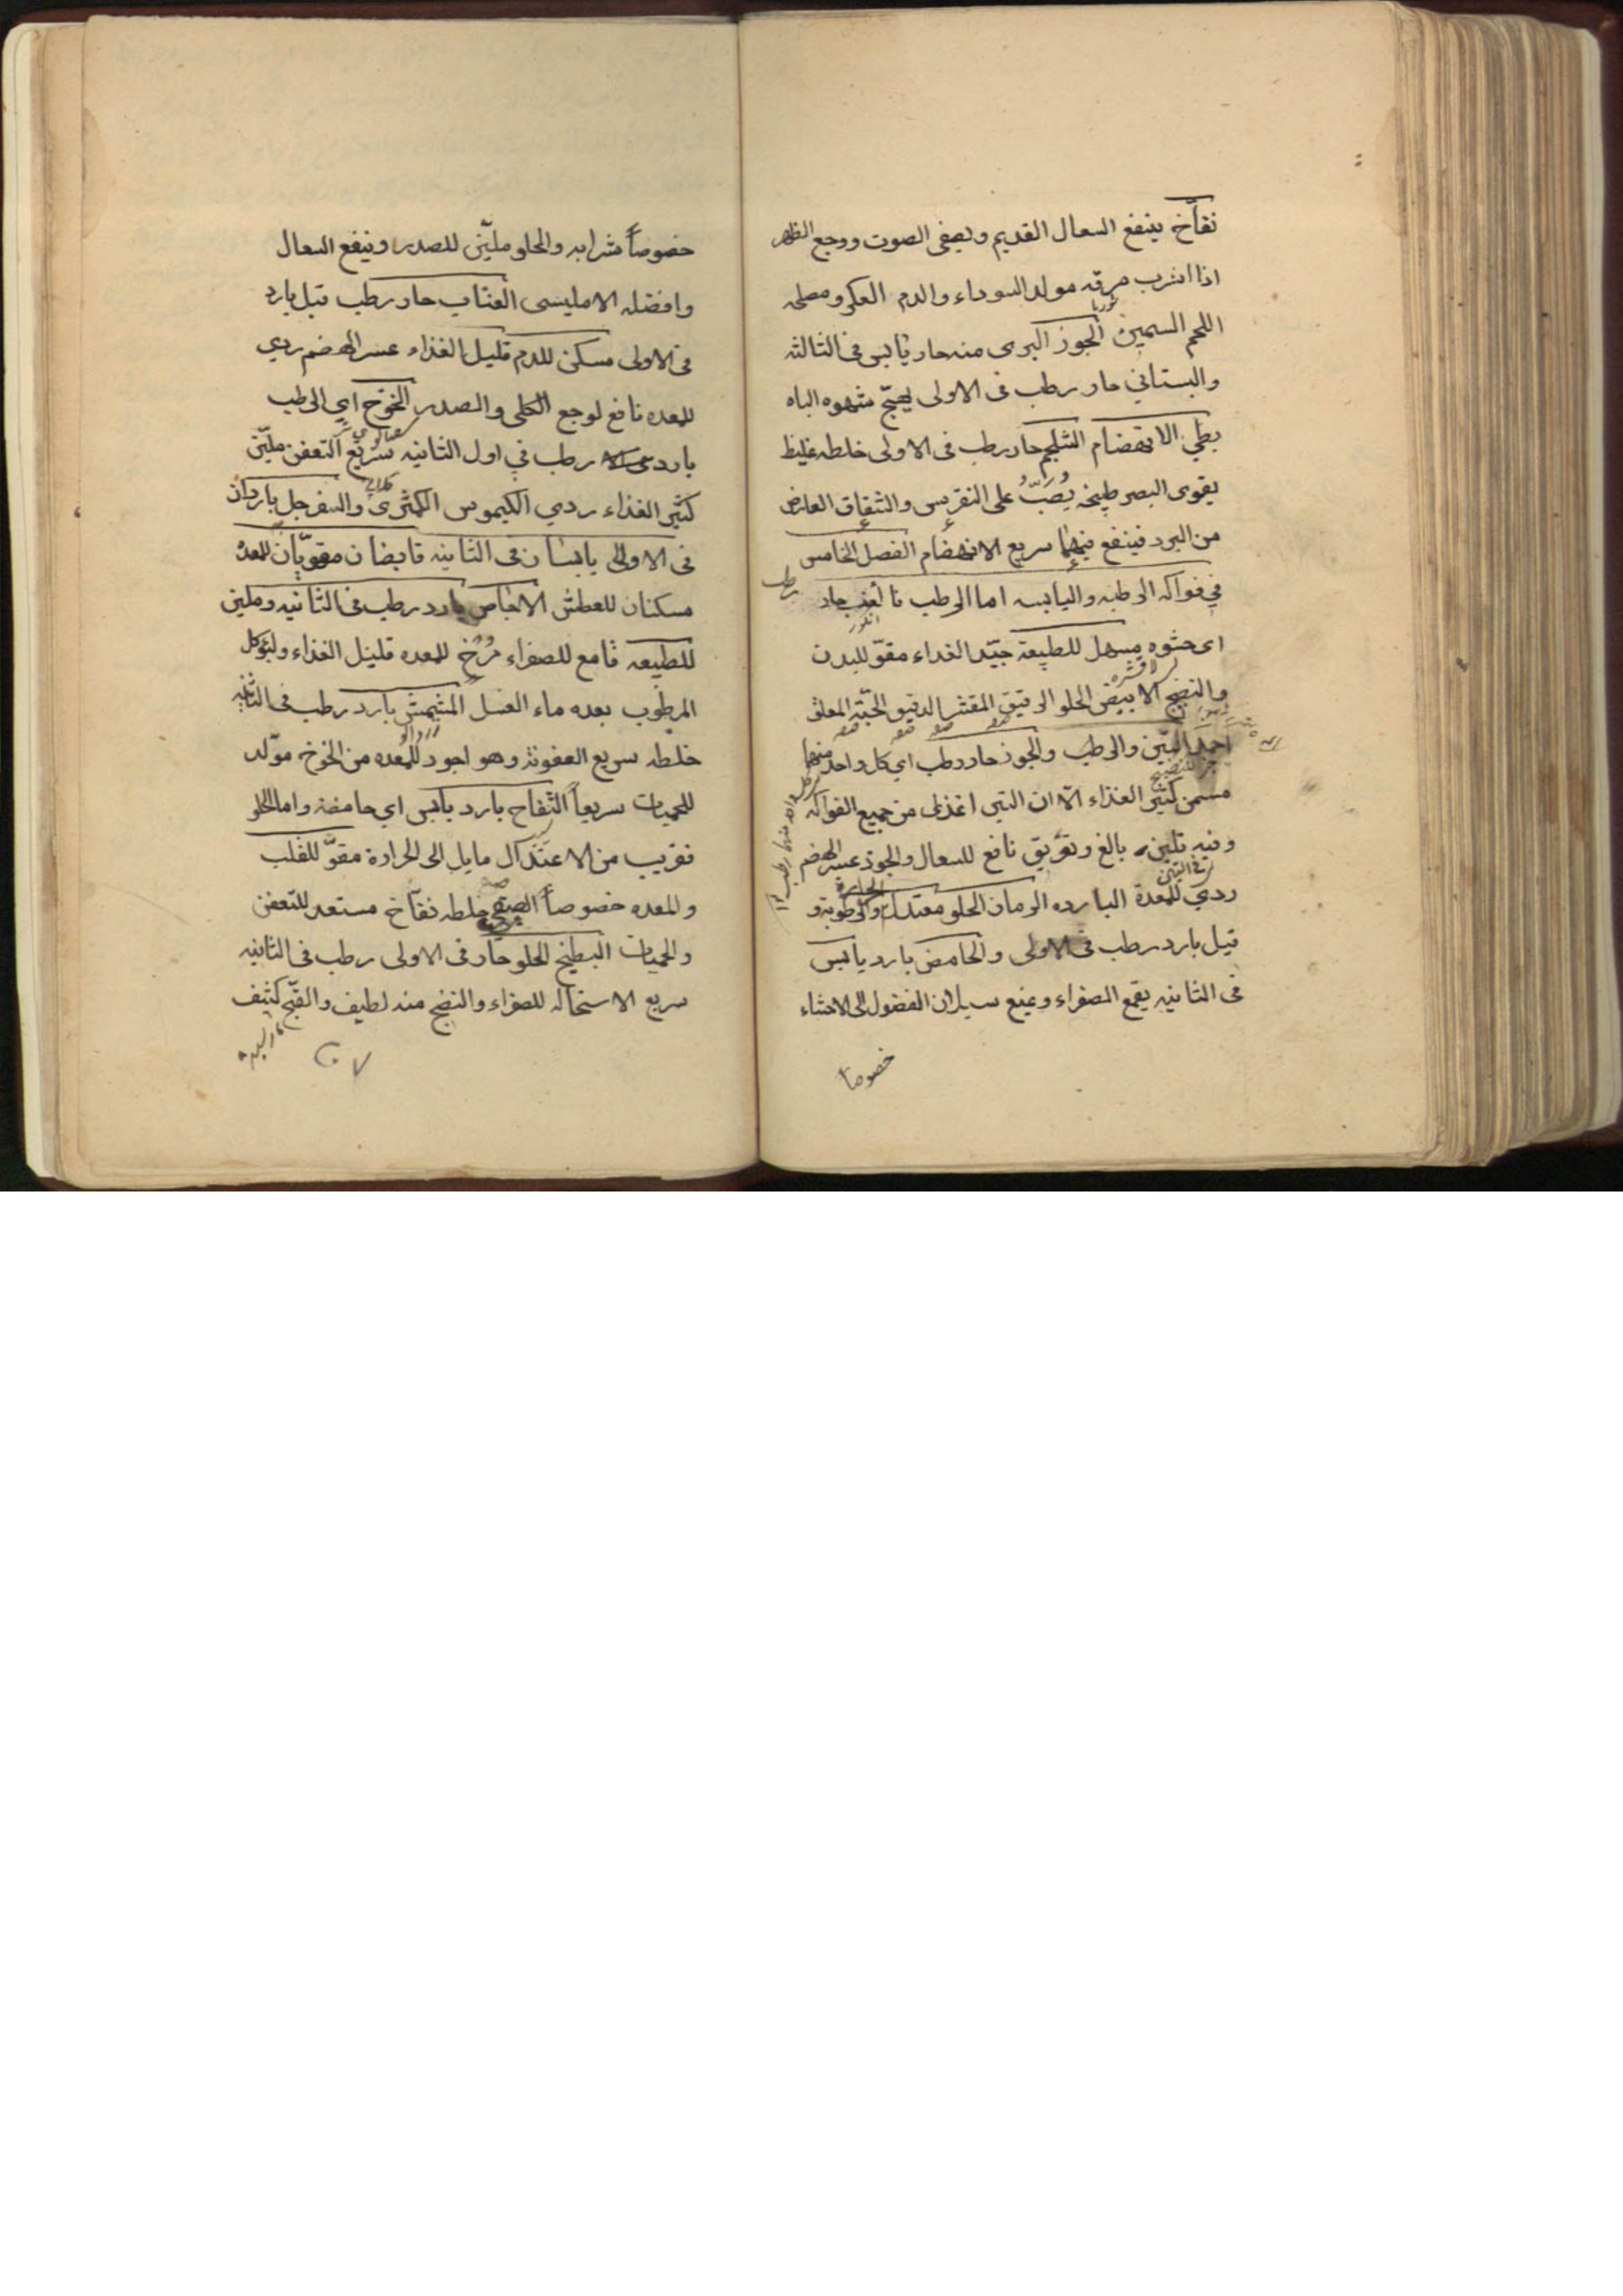 نفاخ ينفع السعال القديم ويصفى الصوت ووجع الظهر
اذا اشرب مرقه مولد السوداء والدم العكر ومصلحه
اللحم السمين الجوز البرى منه حار يابس فى الثالثه
والبستاني حار رطب فى الاولى يهيّج شهوه الباه
بطي الانهضام الشلجم حار رطب فى الاولى خلطه غليظ
يقوى البصر طبيخه يُصَبُّ على النقرس والشقاق العارض
من البرد فينفع فيهما سريع الانهضام الفصل الخامس
في فواكه الرطبه واليابسه اما الرطب فالعنب حار
رطب
انكور
اى حشوه مسهل للطبيعة جيّد الغداء مقوّ للبدن
والنضج الابيض الحلو الرقيق المقشر الدقيق الحبّة المعلق
اجود التين والرطب والجوز حار رطب اي كل واحد منهما
مسمن كثير الغذاء الّا ان التين اغذى من جميع الفواكه
وفيه تليين بالغ وتعريق نافع للسعال والجوز عسر الهضم
ردي للمعدة البارده الرمان الحلو معتدل والرطوبة و
الحرارة
قيل بارد رطب فى الاولى والحامض بارد يابس
فى الثانيه يقمع الصفراء ويمنع سيلان الفضول الى الاحشاء
خصوصا
خصوصاً شرابه والحلو مليّن للصدر وينفع السعال
وافضله الامليسى العنّاب حار رطب قيل بارد
فى الاولى مسكن للدم قليل الغذاء عسر الهضم ردي
للمعده نافع لوجع الكلى والصدر الخوخ اي الرطب
بارد رطب في اول الثانيه سريع التعفن مليّن
كثير الغذاء ردي الكيموس الكمّثرى والسفرجل باردان
فى الاولى يابسان فى الثانيه قابضان مقويّان للمعده
مسكنان للعطش الاجّاص بارد رطب فى الثانيه وملين
للطبيعه قامع للصفراء مُرْخٍ للمعده قليل الغذاء وليؤكل
المرطوب بعده ماء العسل المشمش بارد رطب فى الثانيه
زردالو
خلطه سريع العفونة وهو اجود للمعده من الخوخ مولّد
للحميات سريعاً التفاح بارد يابس اي حامضة واما الحلو
فقريب من الاعتدال مايل الى الحرارة مقوٍّ للقلب
والمعده خصوصاً خلطه نفّاخ مستعد للتعفن
والحميات البطيخ الحلو حار فى الاولى رطب فى الثانيه
سريع الاستحاله للصفراء والنضج منه لطيف والفجّ كثيف